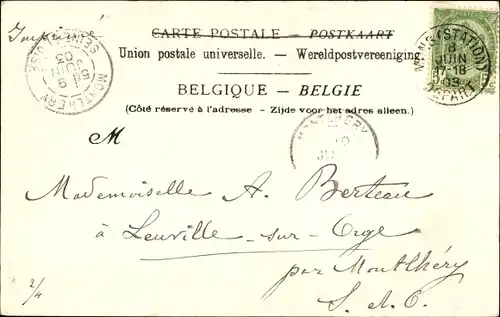 Imprimé
CARTE POSTALE - POSTKAART
Union postale universelle. — Wereldpostvereeniging
BELGIQUE - BELGIE
(Côté réservé à l'adresse - Zijde voor het adres alleen.)
MONTLHERY
SEINE-ET-OISE
9
JUIN
03
MONS (STATION)
8
JUIN
17-18
1903
DEPART
MONTLHERY
M
Mademoiselle A. Berteau
à Leuville-sur-Orge
par Montlhéry
S. et O.
2/4